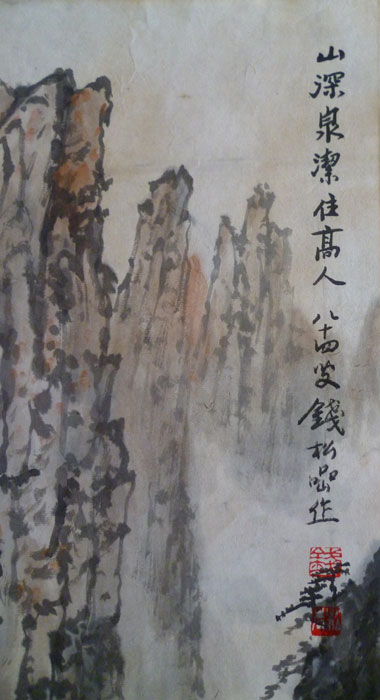 山深泉潔住高人 八十四叟 錢松喦作